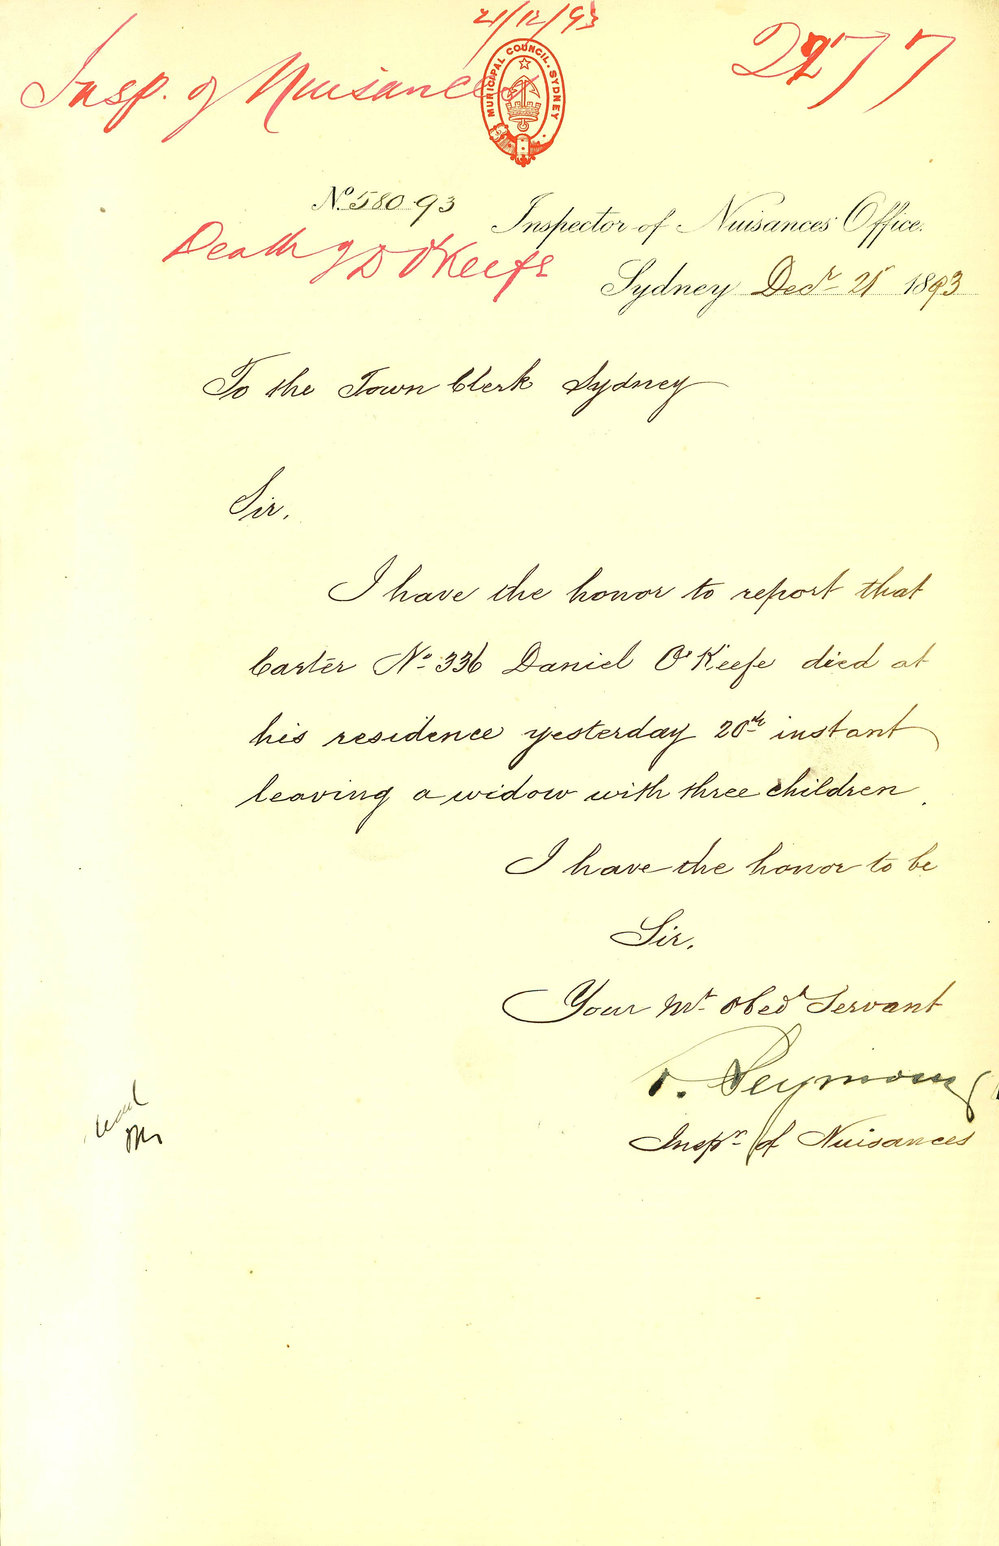 21/12/93
2277
Insp. of Nuisance
MUNICIPAL COUNCIL. SYDNEY
No. 580.93
Inspector of Nuisances' Office.
Death of D O'Keefe
Sydney Decr 21 1893
To the Town Clerk Sydney
Sir,
I have the honor to report that
Carter No 336 Daniel O'Keefe died at
his residence yesterday 20th instant
leaving a widow with three children.
I have the honor to be
Sir,
Your Mt Obedt Servant
Seymour
Inspr of Nuisances